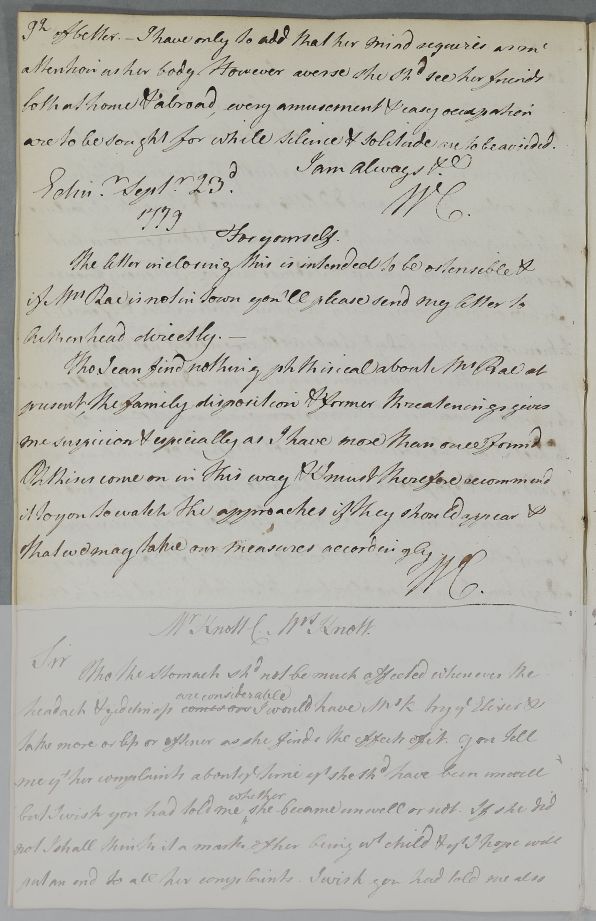 of better. — I have only to add that her mind requires as mc
attention as her body However averse she shd see her friends
both at home & abroad, every amusement & easy occupation
are to be sought for while silence & solitude are to be avoided.
I am always &c
Edinr. Septr. 23d.
WC.
1779
For yourself.
The letter inclosing this is intended to be ostensible &
if Mrs Rae is not in town you'll please send my letter to
directly. —
Tho I can find nothing phthisical about Mrs Rae at
present, the family disposition & former threatenings gives
me suspicion & especially as I have more than once found
Phthisis come on in this way & I must therefore recommend
it to you to watch the approaches if they should appear &
that we may take our measures accordingly
WC.
Mr Knott C. Mrs Knott.
Sir
Tho the stomach shd not be much affected whenever the
are considerable
headach & giddiness comes on I would have Mrs K try yr Elixir &
take more or less or oftner as she finds the effects of it. You tell
me yt her complaints about ye time yt she shd have been unwell
whether
but I wish you had told me she became unwell or not. If she did
not I shall think it a mark of her being wt child & yt I hope will
put an end to all her complaints. I wish you had told me also